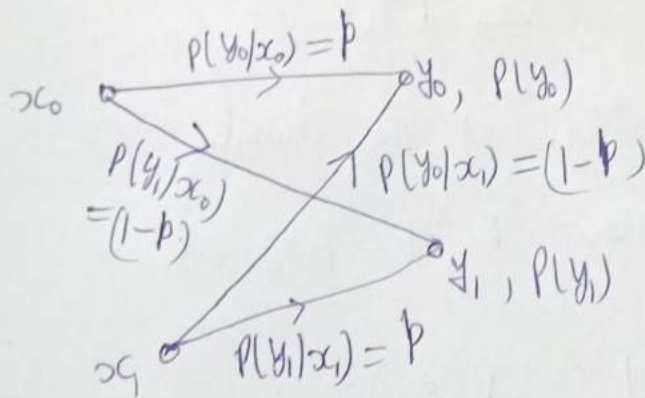 P(y₀/x₀) = p
x₀
y₀, P(y₀)
P(y₁/x₀)
= (1-p)
P(y₀/x₁) = (1-p)
y₁, P(y₁)
P(y₁/x₁) = p
x₁